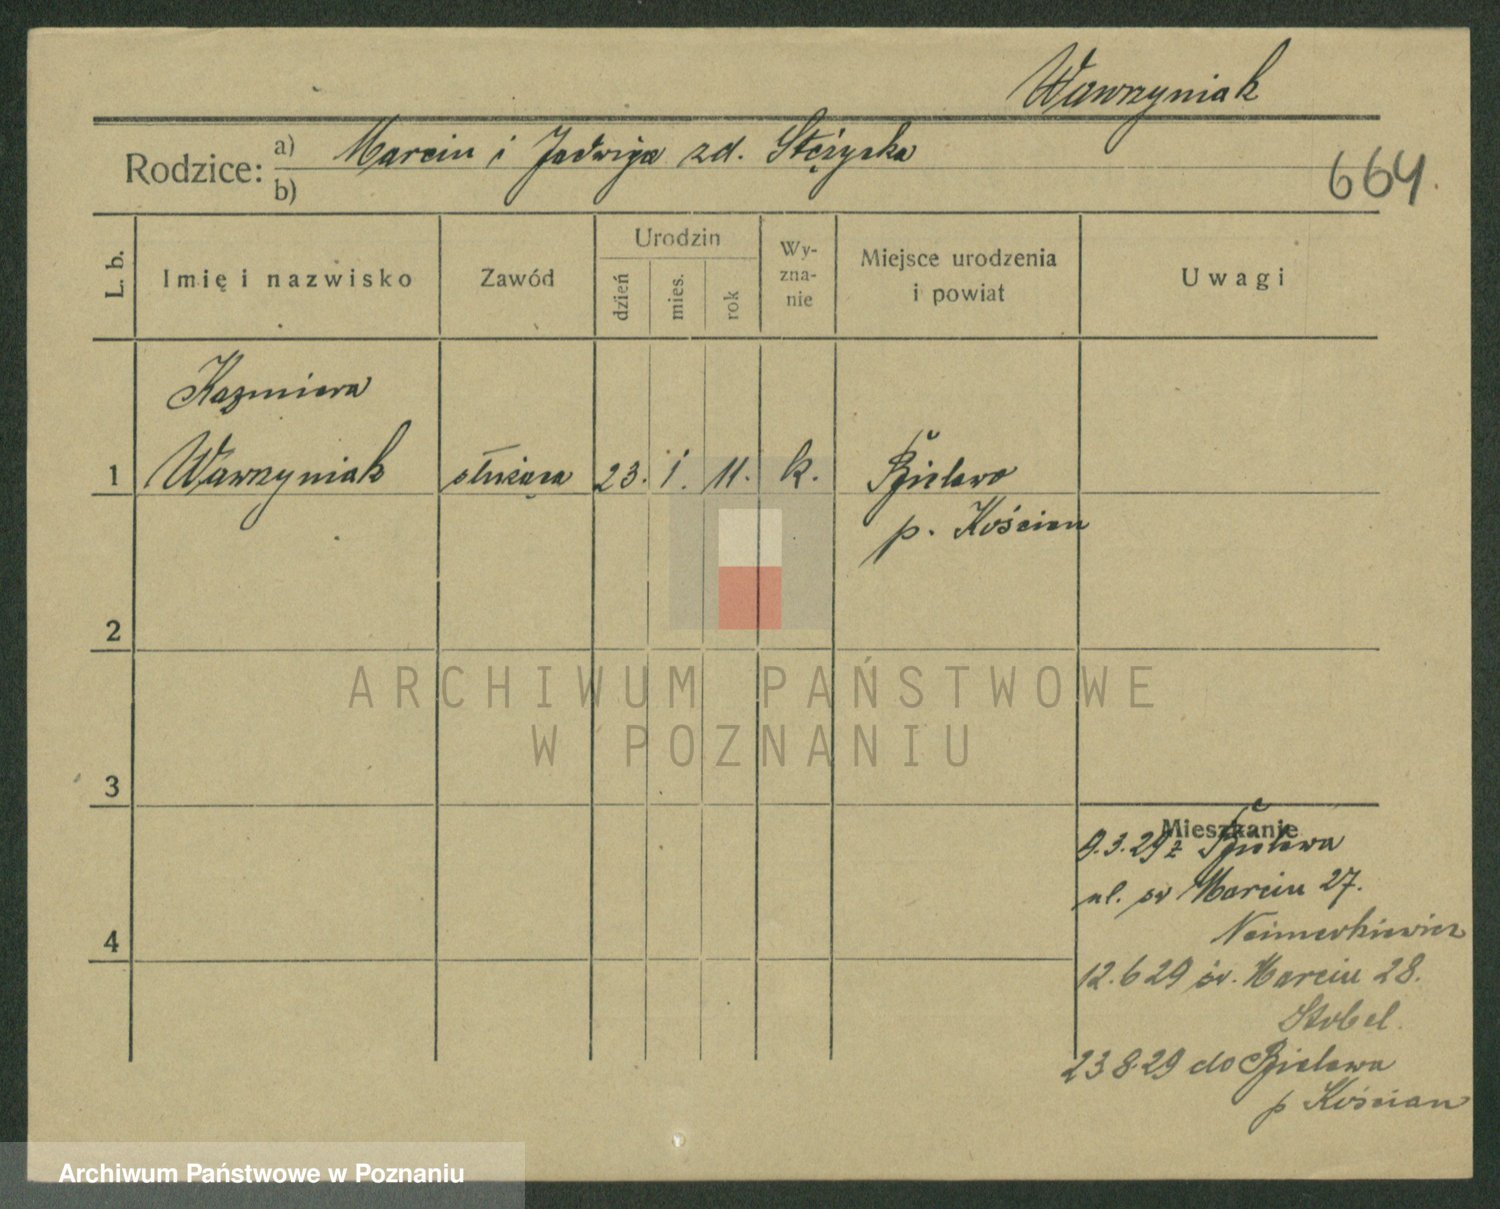 Wawrzyniak
Rodzice:
a) Marcin i Jadwiga zd. Stężycka
b)
664.
L. b.
Imię i nazwisko
Zawód
Urodzin
dzień
mies.
rok
Wy-
zna-
nie
Miejsce urodzenia
i powiat
Uwagi
Kazmiera
1 Wawrzyniak służąca 23. 1. 11. k. Bielewo
p. Kościan
2
3
4
Mieszkanie
9.3.29 z Bielewa
ul. św Marcin 27.
12.6 29 św. Marcin 28.
Stobel.
23 8.29 do Bielewa
p Kościan
ARCHIWUM PAŃSTWOWE
W POZNANIU
Archiwum Państwowe w Poznaniu